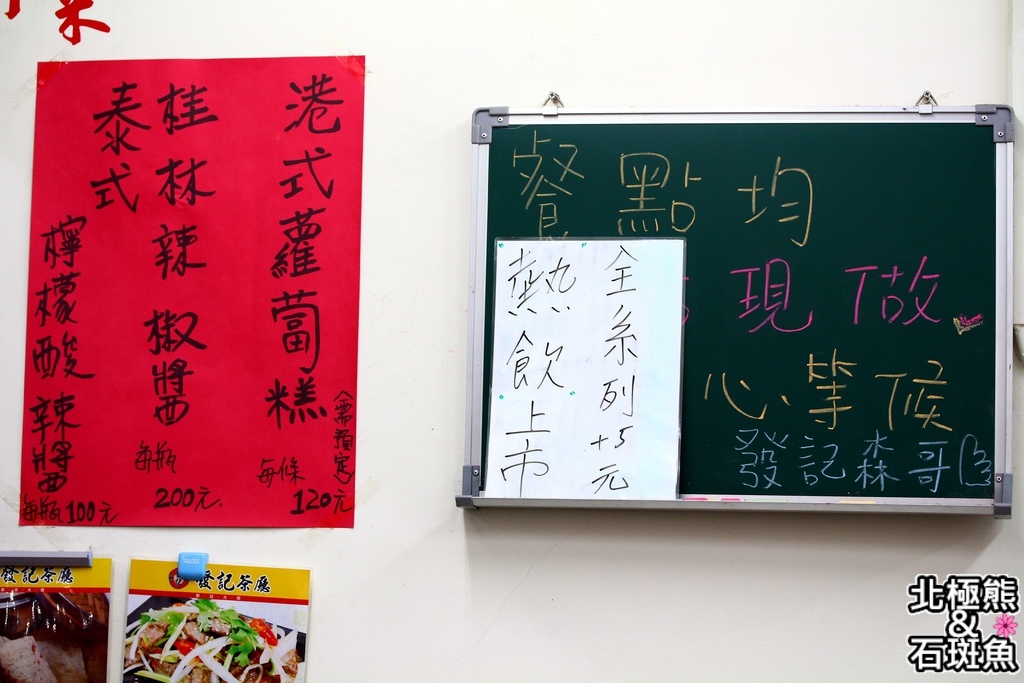 菜
港式蘿蔔糕
(需預定)
每條
120元
桂林辣椒醬
每瓶
200元
泰式
檸檬酸辣醬
每瓶100元
餐點均
現做
心等候
發記森哥
全系列+5元
熱飲上市
發記茶廳
發記茶廳
北極熊
&
石斑魚